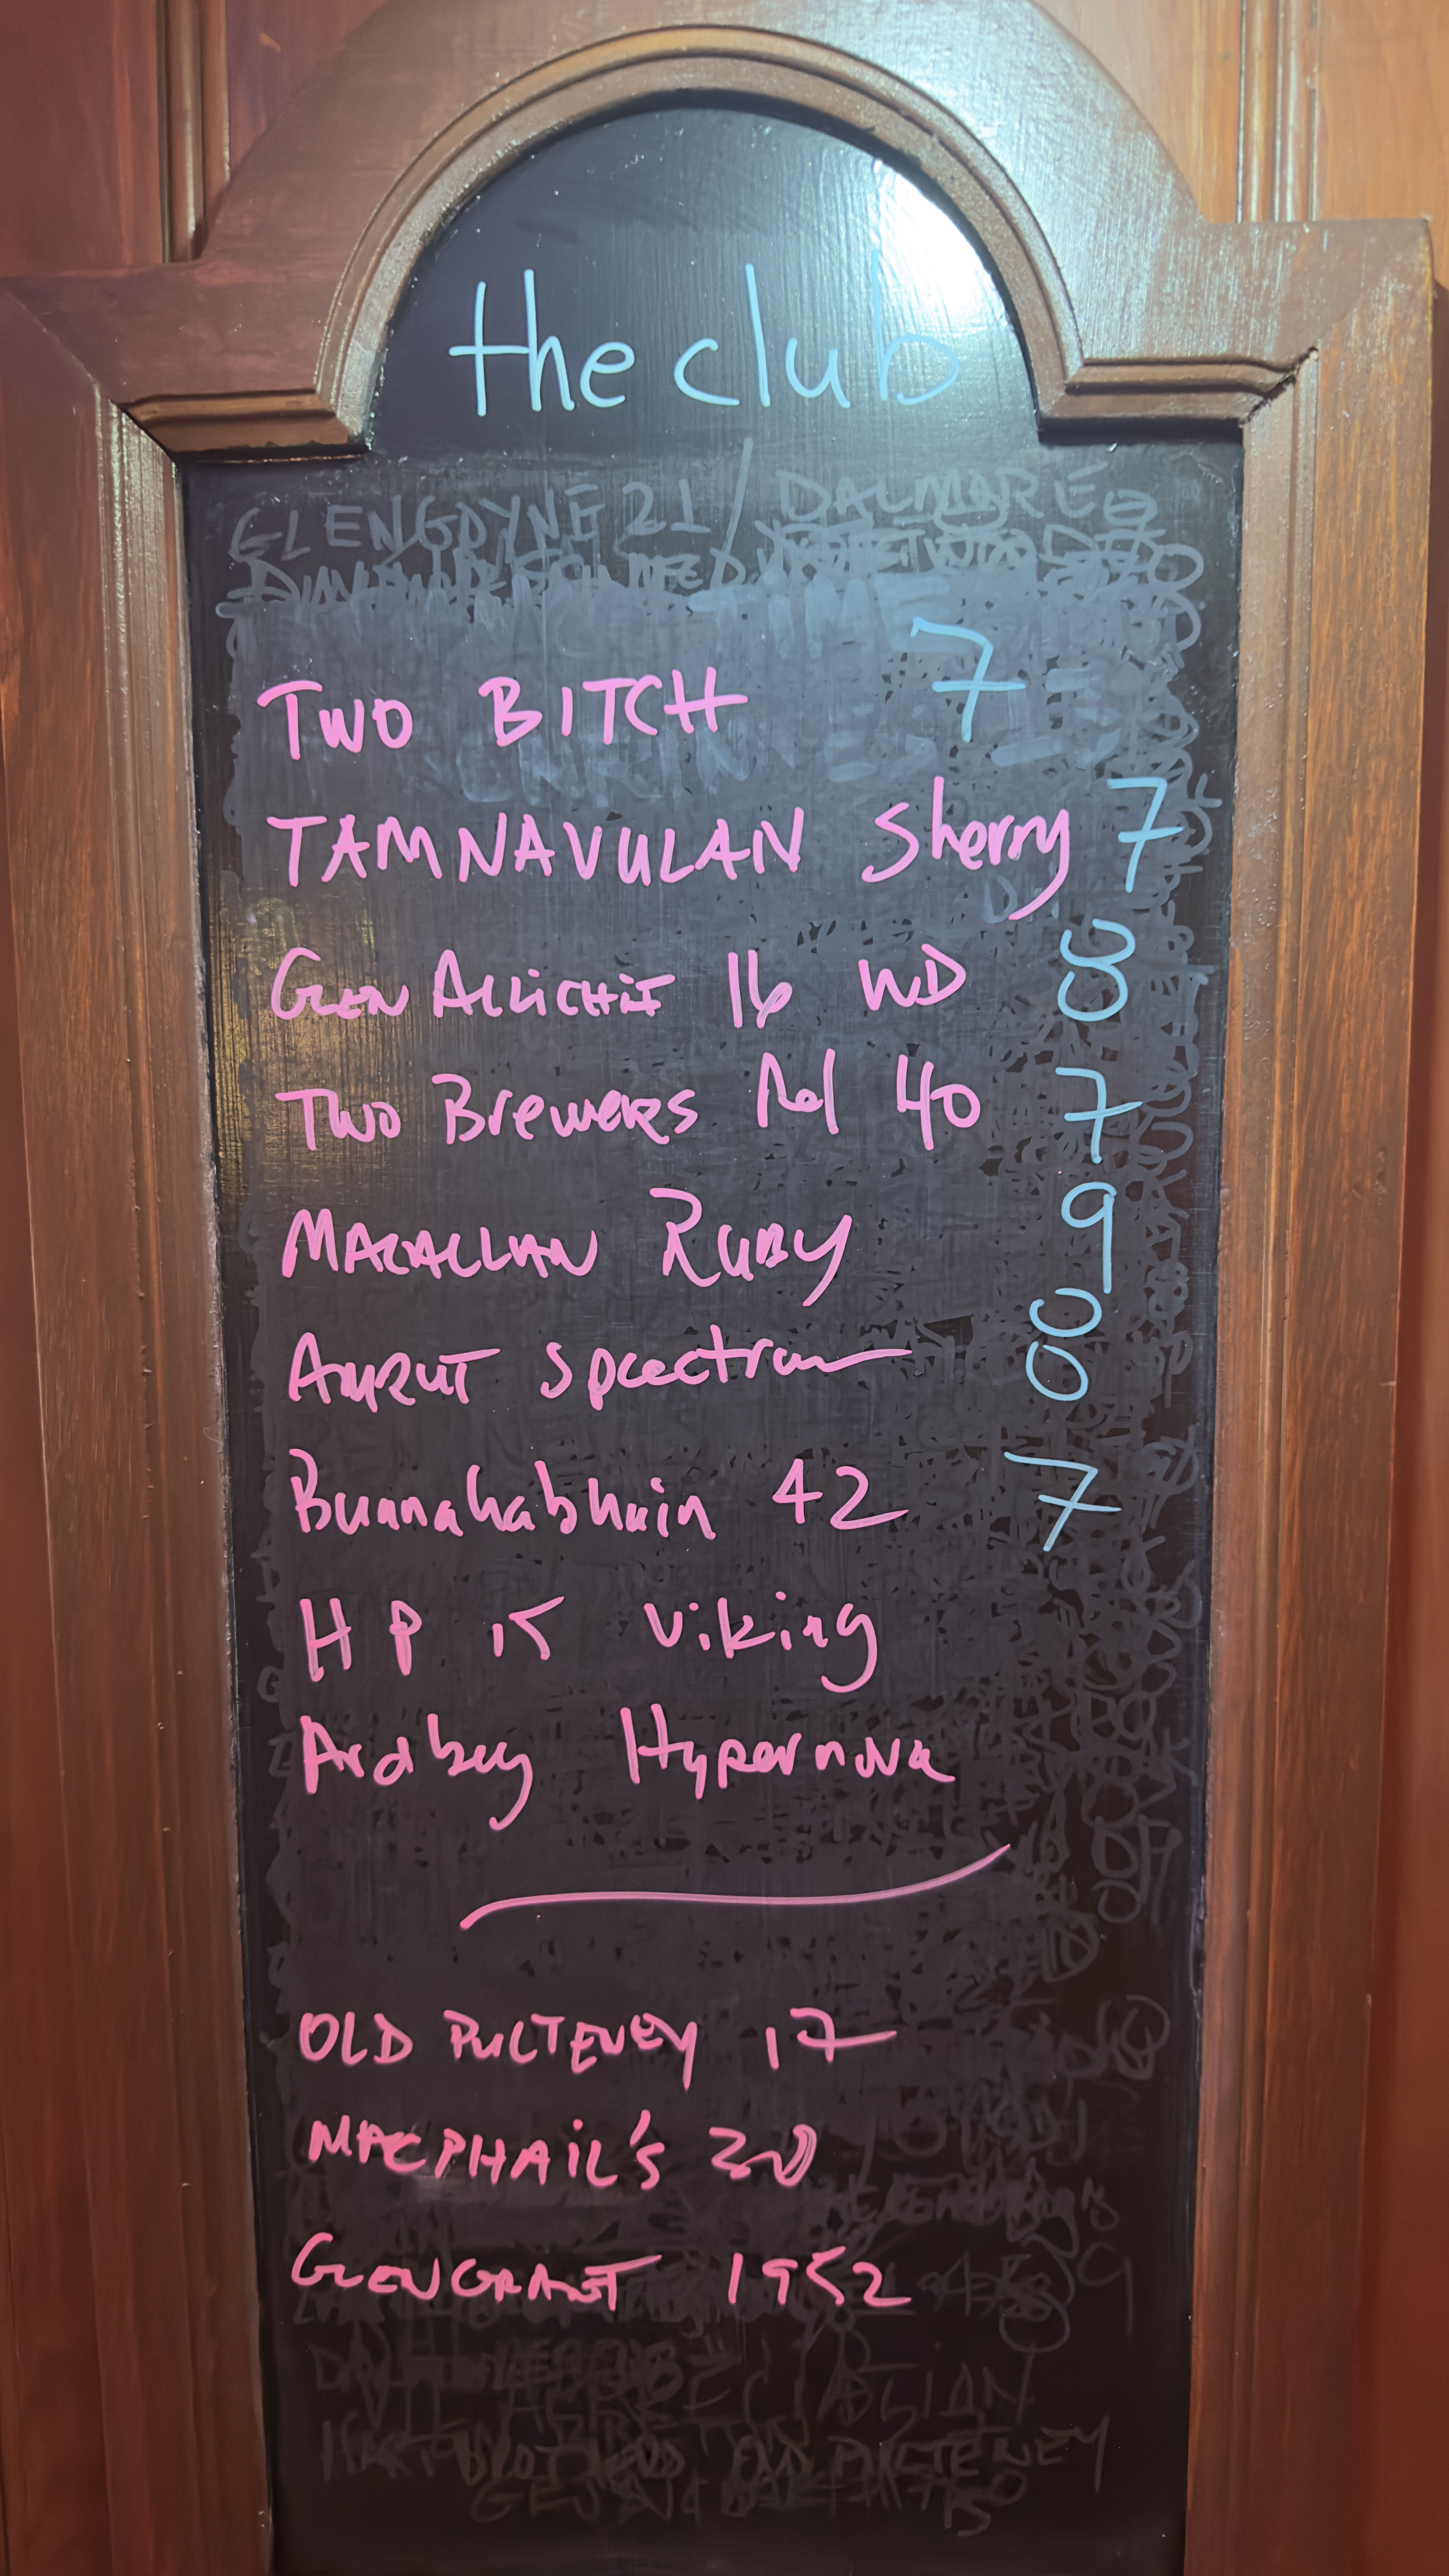 the club
GLENGOYNE 21 / DALMORE
TWO BITCH 7
TAMNAVULAN Sherry 7
GLEN ALLICHIE 16 WD 8
TWO Brewers Rel 40 7
MACALLAN RUBY 9
AMRUT Spectrum 8
Bunnahabhain 42 7
HP 15 Viking
Ardbeg Hypernova
OLD PULTENEY 17
MACPHAIL'S 30
GLENGRANT 1952